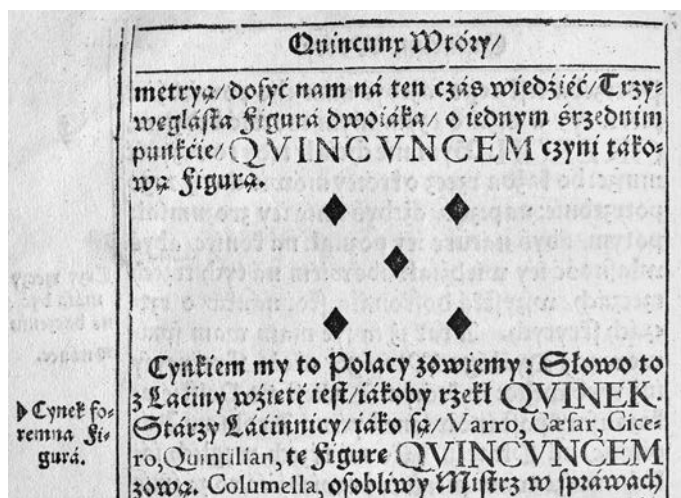 Quincunx Wtóry/
metryą/ dosyć nam ná ten czás wiedźiéć/ Trzy-
węglásta Figurá dwoiáka/ o iednym śrzednim
punkćie/ QVINCVNCEM czyni táko-
wą Figurą.
Cynkiem my to Polacy zowiemy: Słowo to
z Łáćiny wźięté iest/ iákoby rzekł QVINEK.
Stárzy Łáćinnicy/ iáko są/ Varro, Cæsar, Cice-
ro, Quintilian, te Figure QVINCVNCEM
zową. Columella, osobliwy Mistrz w spráwách
Cynek fo-
remna Fi-
gurá.